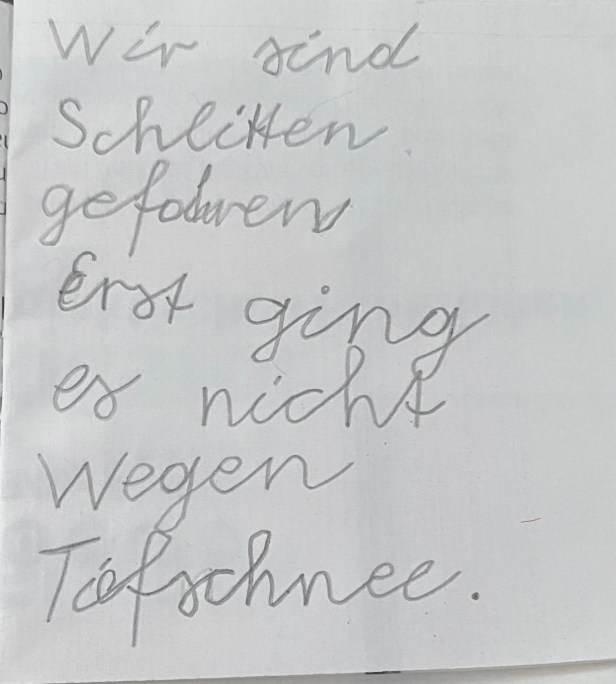 Wir sind
Schlitten
gefahren
Erst ging
es nicht
Wegen
Tiefschnee.